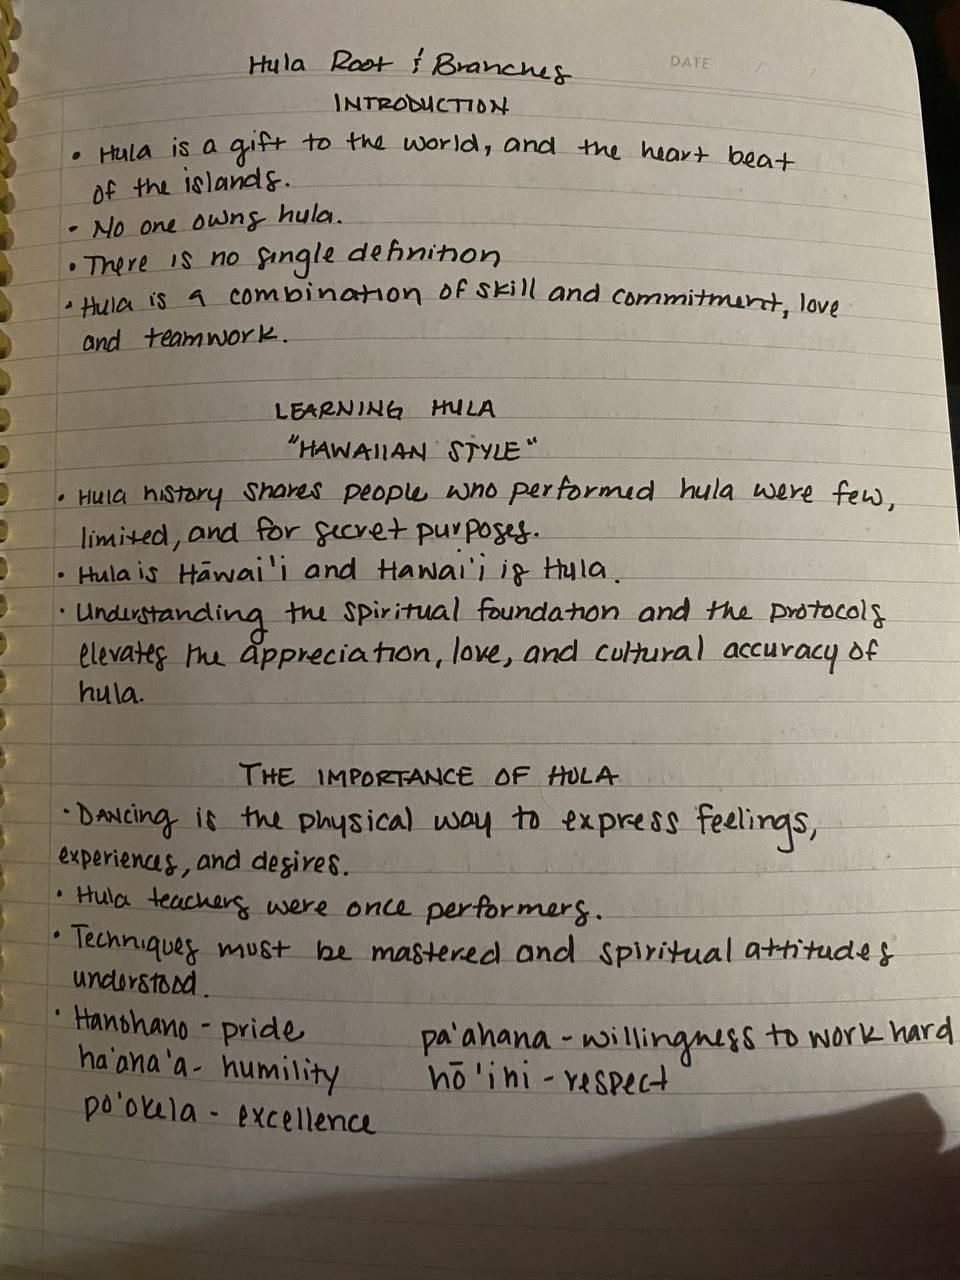 Hula Root & Branches
DATE / /
INTRODUCTION
• Hula is a gift to the world, and the heart beat
of the islands.
• No one owns hula.
• There is no single definition
• Hula is a combination of skill and commitment, love
and teamwork.
LEARNING HULA
"HAWAIIAN STYLE"
• Hula history shares people who performed hula were few,
limited, and for secret purposes.
• Hula is Hāwai'i and Hawai'i is Hula.
• Understanding the spiritual foundation and the protocols
elevates the appreciation, love, and cultural accuracy of
hula.
THE IMPORTANCE OF HULA
• Dancing is the physical way to express feelings,
experiences, and desires.
• Hula teachers were once performers.
• Techniques must be mastered and spiritual attitudes
understood.
• Hanohano - pride pa'ahana - willingness to work hard
ha'ana'a - humility hō'ihi - respect
po'okela - excellence